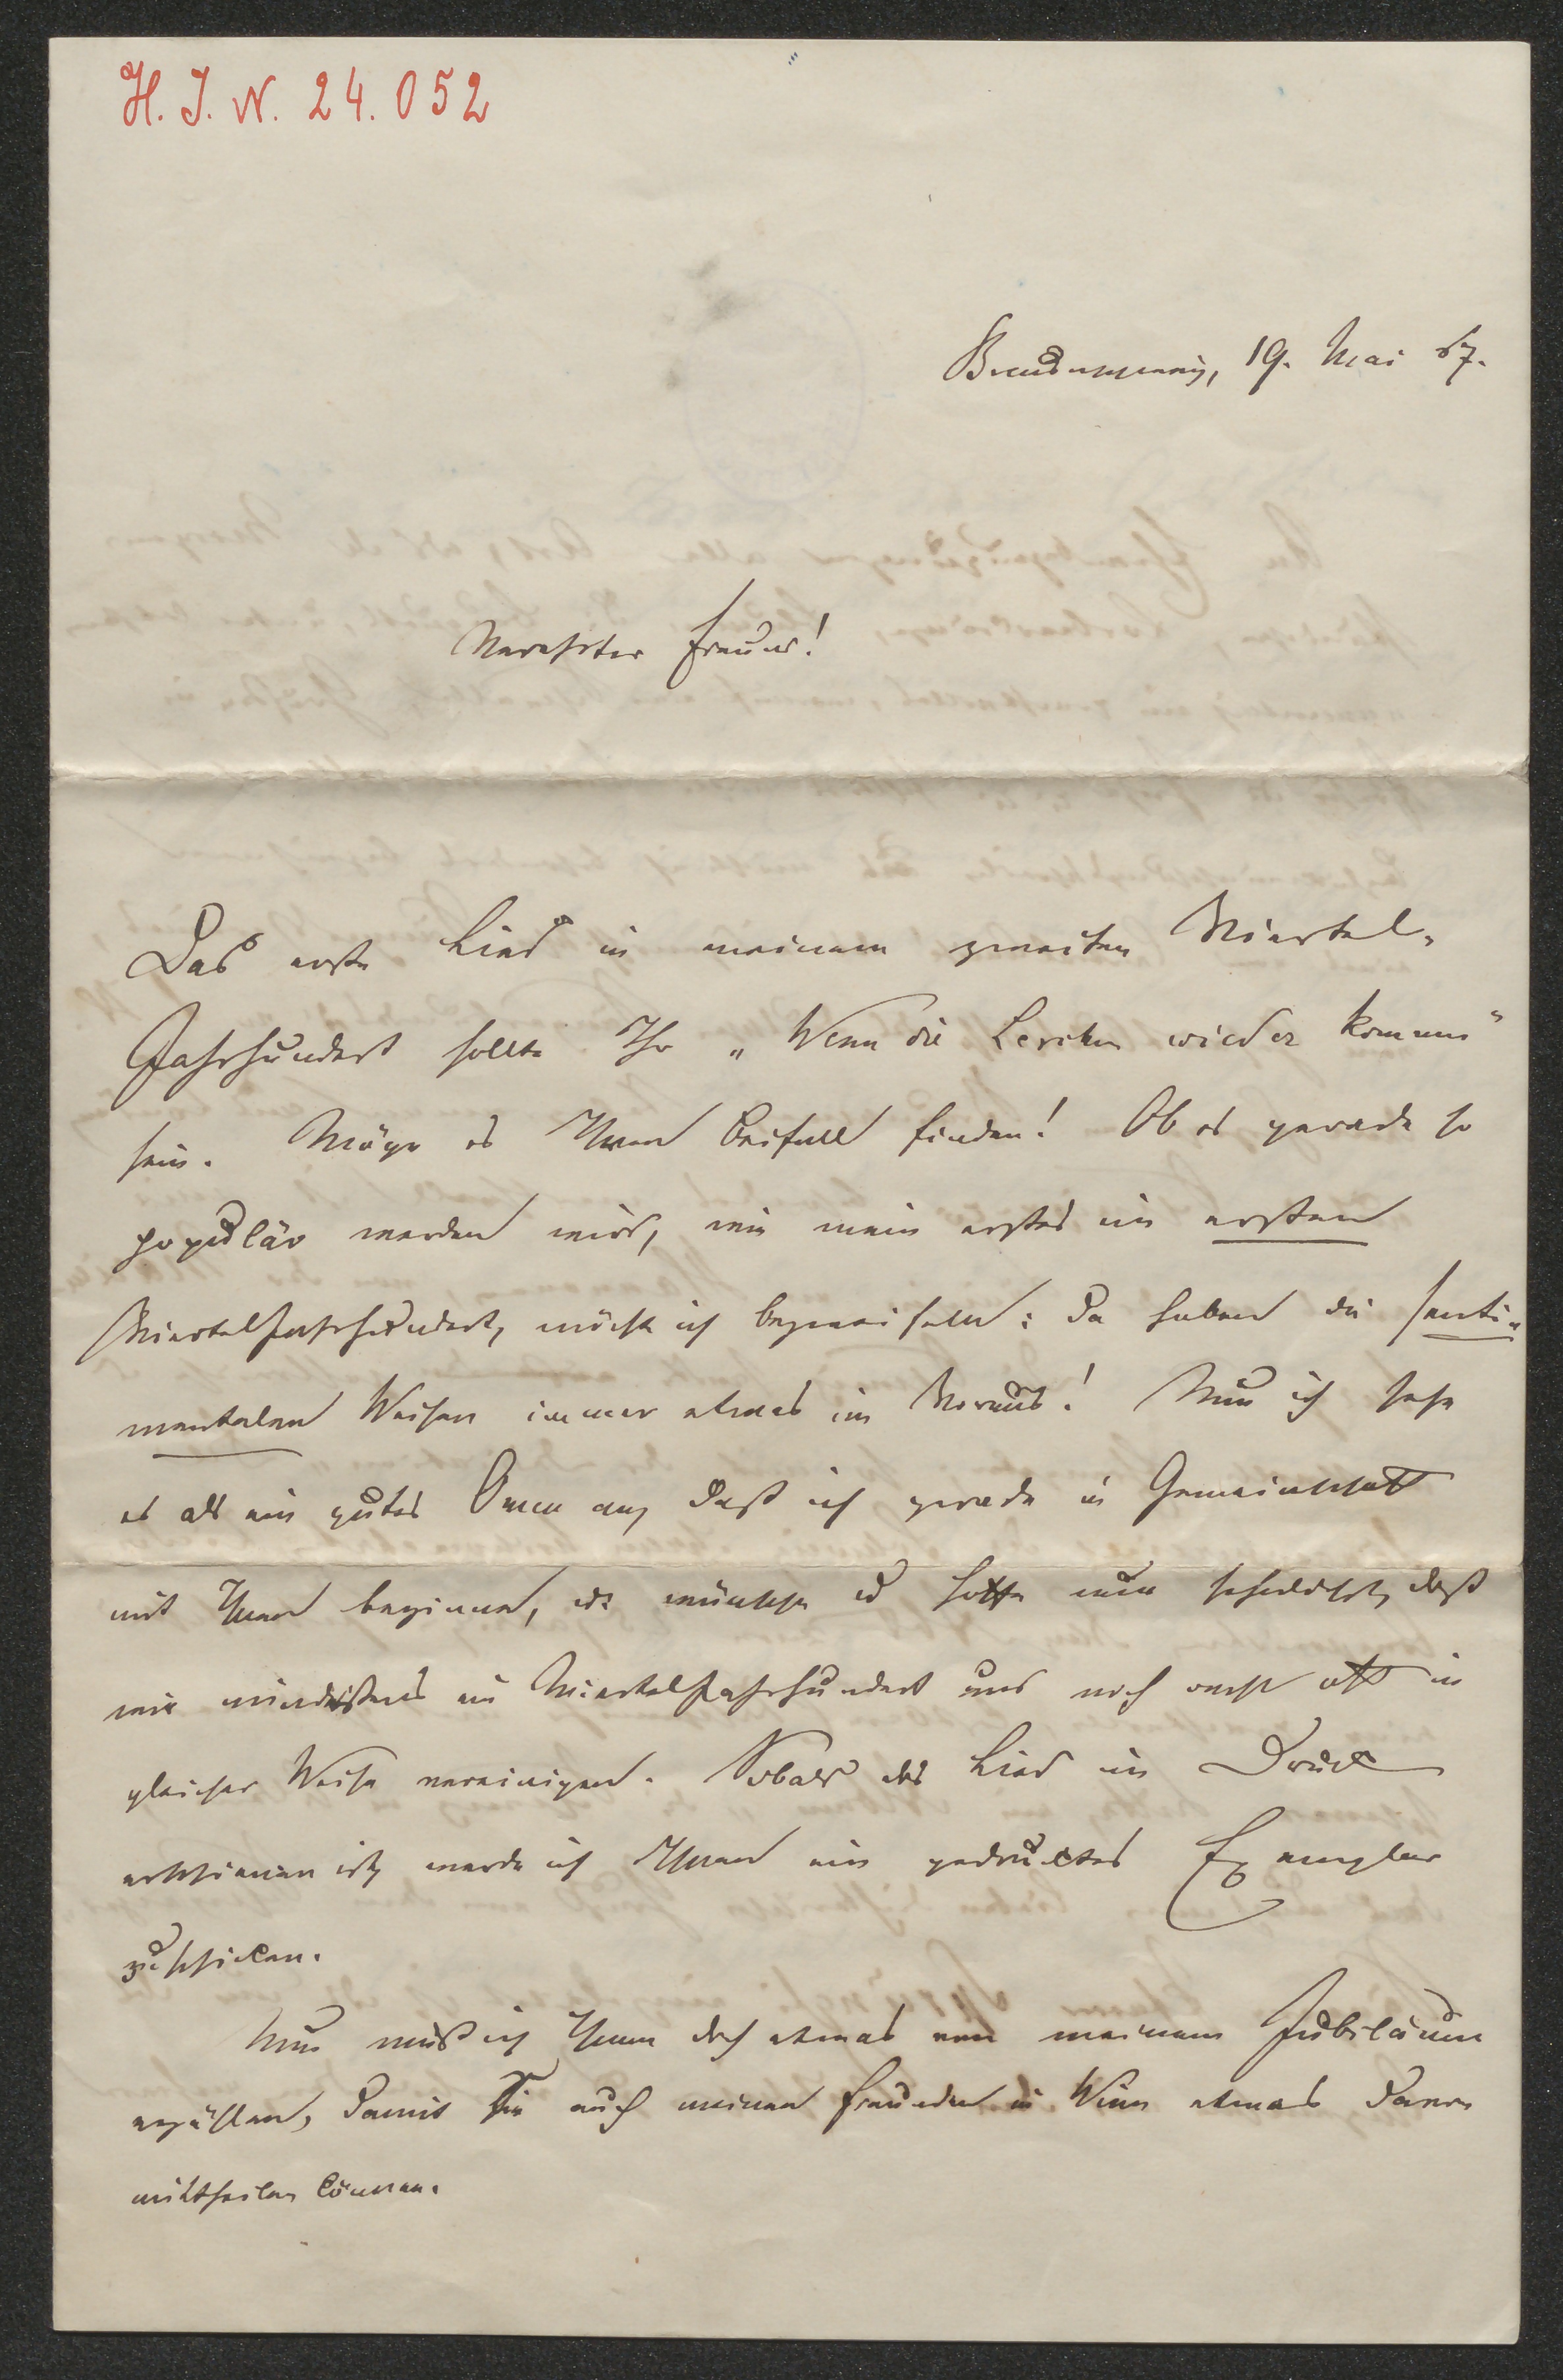 H. I. N. 24.052
Braunschweig, 19. Mai 67.
Verehrter Freund!
Das erste Lied in meinem zweiten Viertel-
Jahrhundert sollte Ihr „Wenn die Lerchen wieder kommen“
sein. Möge es Ihnen Beifall finden! Ob es gerade so
populär werden wird, wie mein erstes im ersten
Vierteljahrhundert, möchte ich bezweifeln: da haben die senti-
mentalen Weisen immer etwas im Voraus! Nun ich sehe
es als ein gutes Omen an, daß ich gerade in Gemeinschaft
mit Ihnen beginne, u. wünsche u hoffe nun sehnlichst, daß
wir mindestens im Vierteljahrhundert uns noch recht oft in
gleicher Weise vereinigen. Sobald das Lied im Druck
erschienen ist, werde ich Ihnen ein gedrucktes Exemplar
zuschicken.
Nun muß ich Ihnen doch etwas von meinem Jubiläum
erzählen, damit Sie auch meinen Freunden in Wien etwas davon
mittheilen können.